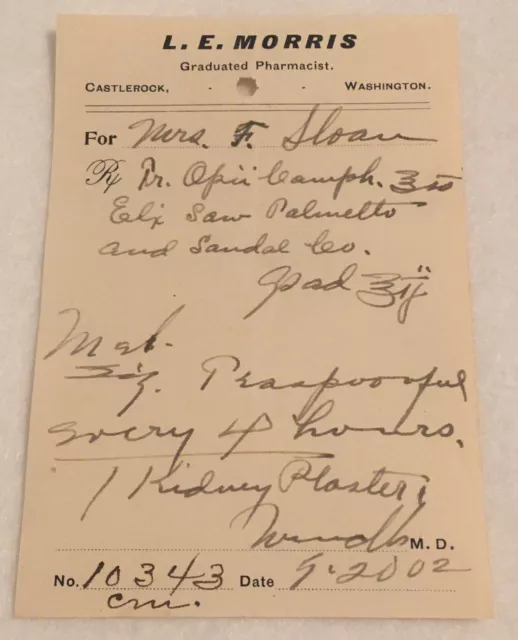 L. E. MORRIS
Graduated Pharmacist.
CASTLEROCK, - - WASHINGTON.
For Mrs. F. Sloan
Rx Tr. Opii Camph. ℥ss
Elix Saw Palmetto
and Sandal Co.
qsad ℥ij
M et.
Sig. Teaspoonful
every 4 hours.
1 Kidney Plaster
M. D.
No. 10343 Date 9-20 02
cm.